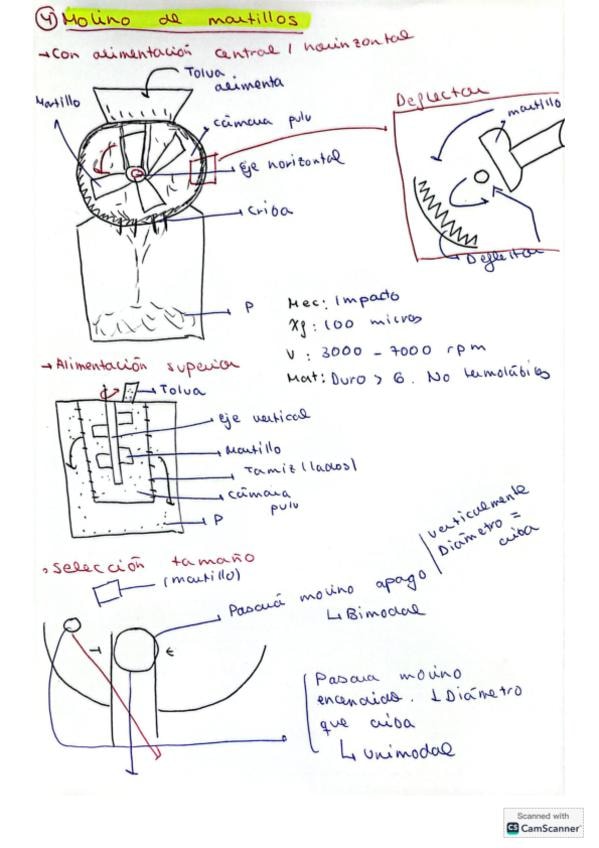 ④ Molino de martillos
→ Con alimentación central / horizontal
Tolva alimenta
Martillo
cámara pulv
Eje horizontal
Criba
P
Deflector
martillo
Deflector
Mec: Impacto
Xf: 100 micras
V: 3000 - 7000 rpm
Mat: Duro > 6. No termolábiles
→ Alimentación superior
Tolva
Eje vertical
Martillo
Tamiz (lados)
cámara pulv
P
selección tamaño
(martillo)
Pasará molino apago
↳ Bimodal
verticalmente
Diámetro =
criba
Pasará molino
encendido. ↓ Diámetro
que criba
↳ unimodal
Scanned with
CS CamScanner